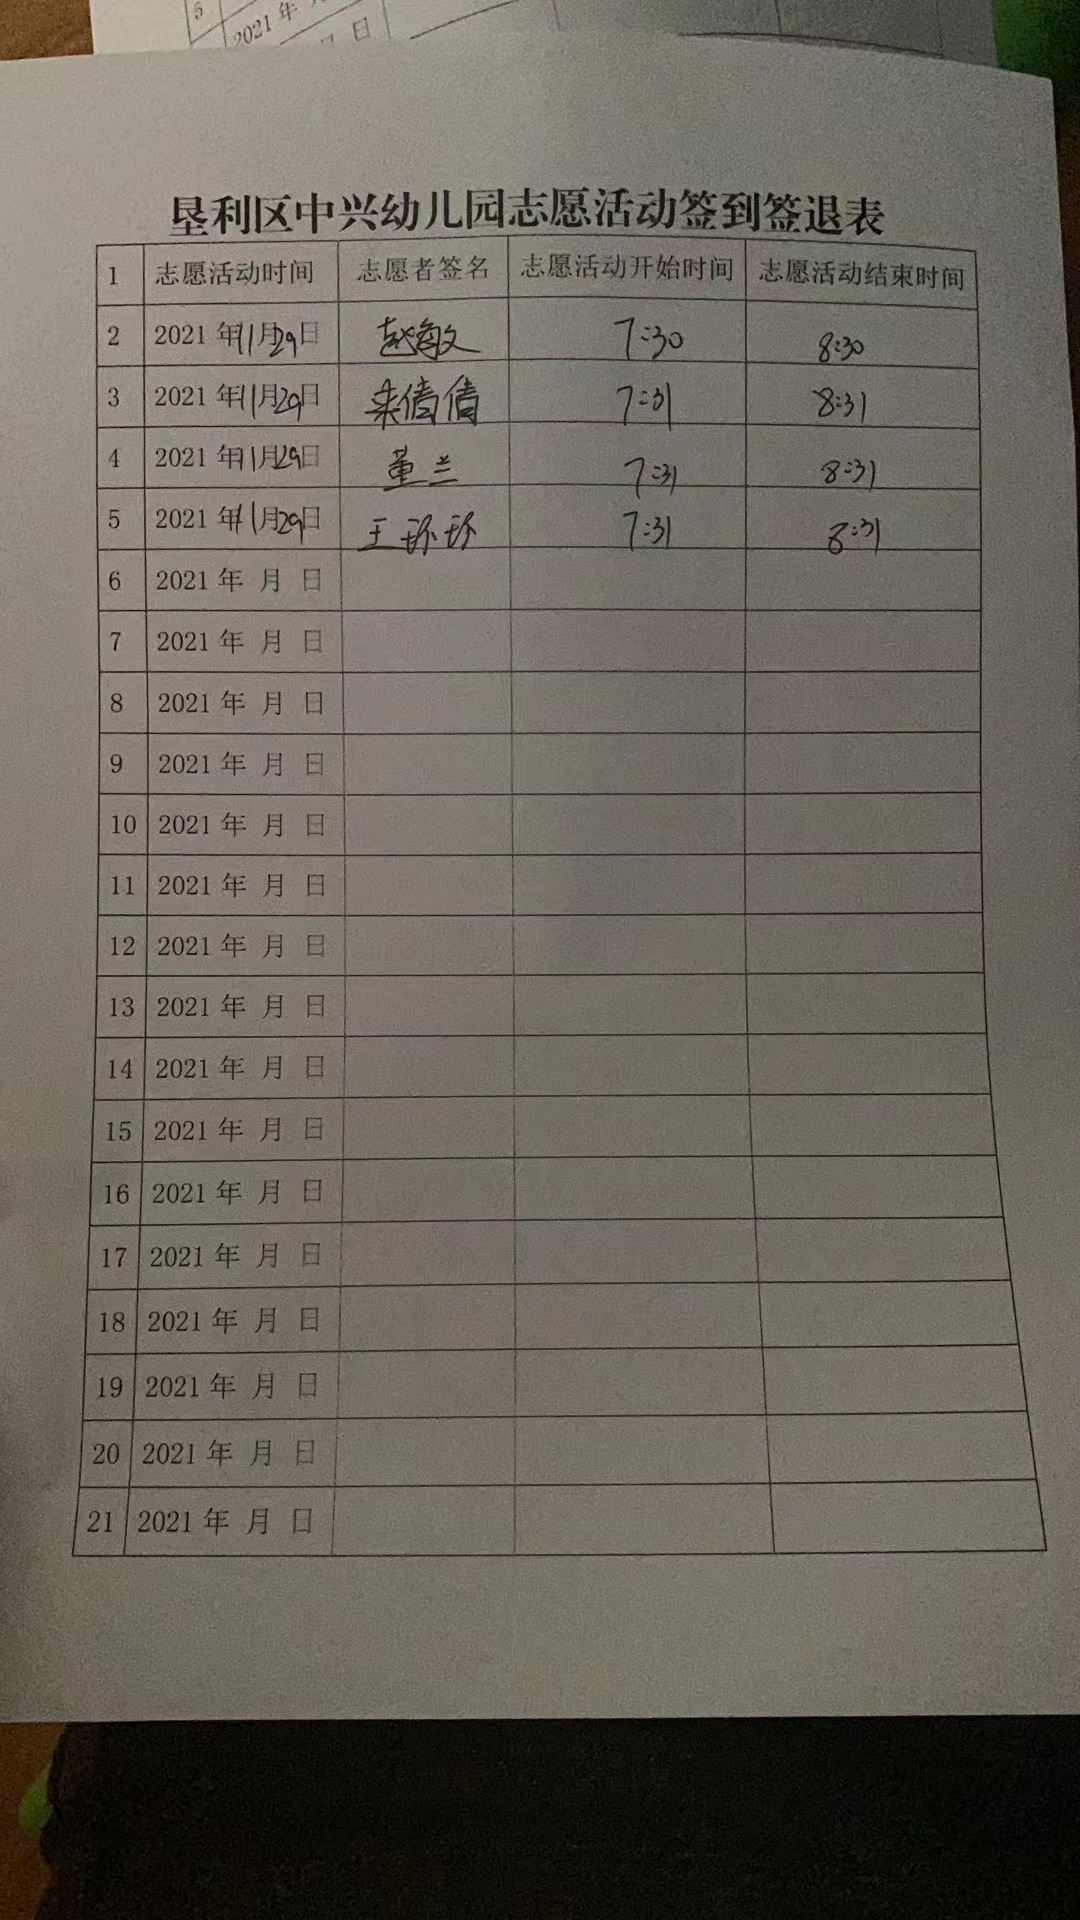 5
2021 年
日
垦利区中兴幼儿园志愿活动签到签退表
1 志愿活动时间 志愿者签名 志愿活动开始时间 志愿活动结束时间
2 2021 年11月29日 赵敏 7:30 8:30
3 2021 年11月29日 倩倩 7:31 8:31
4 2021 年11月29日 董兰 7:31 8:31
5 2021 年11月29日 王环环 7:31 8:31
6 2021 年 月 日
7 2021 年 月 日
8 2021 年 月 日
9 2021 年 月 日
10 2021 年 月 日
11 2021 年 月 日
12 2021 年 月 日
13 2021 年 月 日
14 2021 年 月 日
15 2021 年 月 日
16 2021 年 月 日
17 2021 年 月 日
18 2021 年 月 日
19 2021 年 月 日
20 2021 年 月 日
21 2021 年 月 日